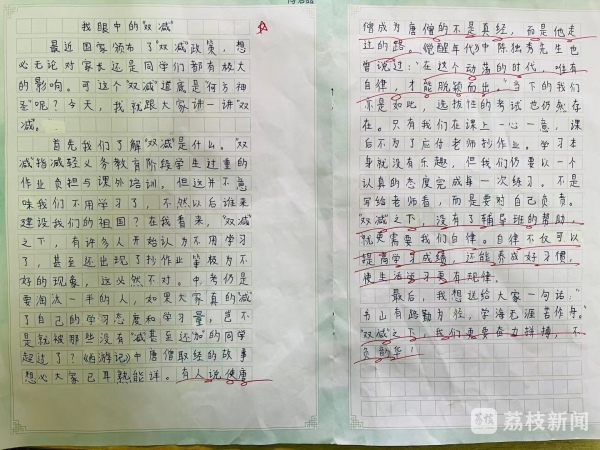 我眼中的"双减"
最近国家颁布了"双减"政策，想
必无论对家长还是同学们都有极大
的影响。可这个"双减"道底是"何方神
圣"呢？今天，我就跟大家讲一讲"双
减。
首先我们了解"双减"是什么。"双
减"指减轻义务教育阶段学生过重的
作业负担与课外培训，但这并不意
味我们不用学习了，不然以后谁来
建设我们的祖国？在我看来，"双减"
之下，有许多人开始认为不用学习
了，甚至还出现了抄作业等极为不
好的现象，这必然不对。中考仍是
要淘汰一半的人，如果大家真的"减"
了自己的学习态度和学习量，岂不
是就被那些没有"减"甚至还"加"的同学
超过了？《西游记》中唐僧取经的故事
想必大家已耳熟能详。有人说使唐
僧成为唐僧的不是真经，而是他走
过的路。《觉醒年代》中陈独秀先生也
曾说过：在这个动荡的时代，唯有
自律，才能脱颖而出。当下的我们
亦是如此，选拔性的考试也仍然存
在。只有我们在课上一心一意，课
后不为了应付老师抄作业。学习本
身就没有乐趣，但我们仍要以一个
认真的态度完成每一次练习。不是
写给老师看，而是要对自己负责。
"双减"之下，没有了辅导班的帮助，
就更需要我们自律。自律不仅可以
提高学习成绩，还能养成好习惯，
使生活学习更有规律。
最后，我想送给大家一句话，"
书山有路勤为径，学海无涯苦作舟。"
"双减"之下，我们更要奋力拼搏，不
负韶华！
荔枝新闻